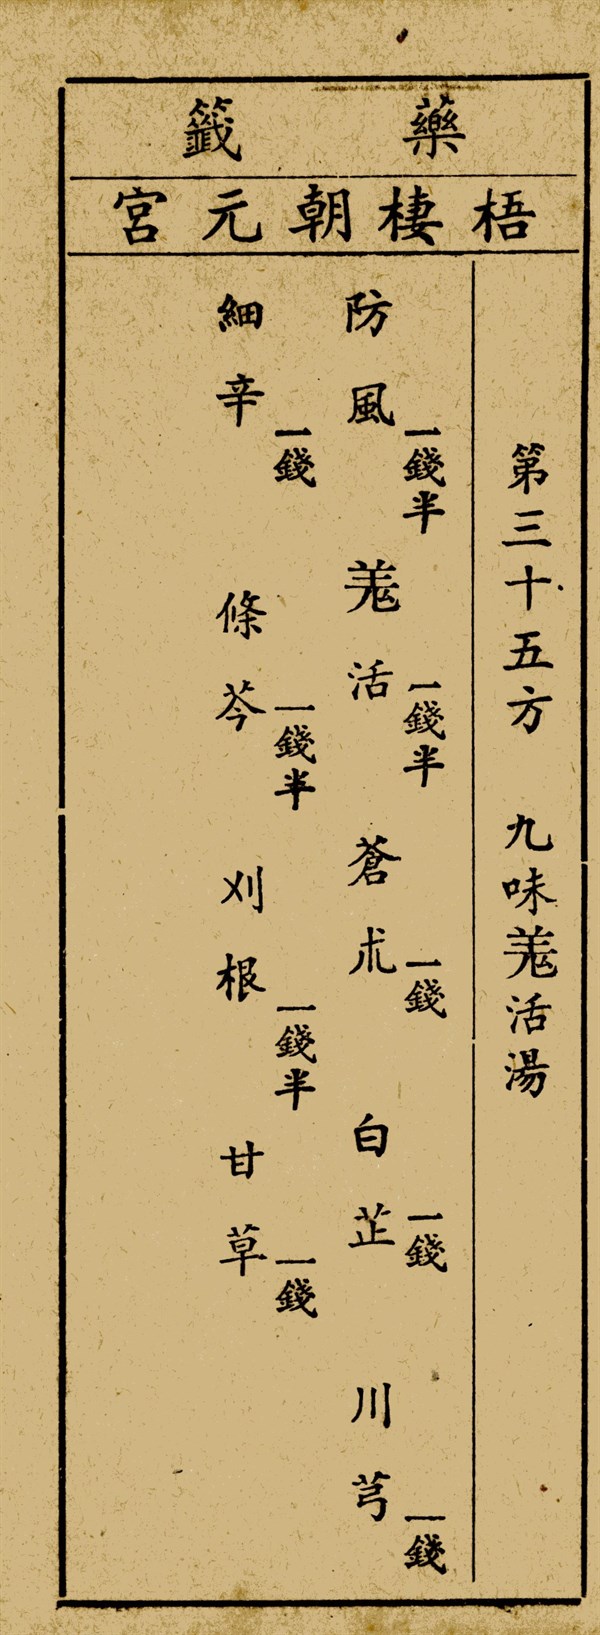 藥籤
梧棲朝元宮
第三十五方 九味羗活湯
防風一錢半 羗活一錢半 蒼朮一錢 白芷一錢 川芎一錢
細辛一錢 條芩一錢半 刈根一錢半 甘草一錢